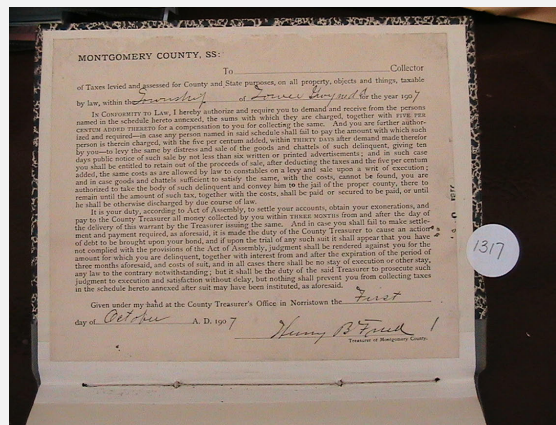 MONTGOMERY COUNTY, SS:
To Collector
of Taxes levied and assessed for County and State purposes, on all property, objects and things, taxable
by law, within the Township of Lower Gwynedd for the year 1907
IN CONFORMITY TO LAW, I hereby authorize and require you to demand and receive from the persons
named in the schedule hereto annexed, the sums with which they are charged, together with FIVE PER
CENTUM ADDED THERETO for a compensation to you for collecting the same. And you are further author-
ized and required—in case any person named in said schedule shall fail to pay the amount with which such
person is therein charged, with the five per cent added, within THIRTY DAYS after demand made therefor
by you—to levy the same by distress and sale of the goods and chattels of such delinquent, giving ten
days public notice of such sale by not less than six written or printed advertisements; and in such case
you shall be entitled to retain out of the proceeds of sale, after deducting the taxes and the five per cent
added, the same costs as are allowed by law to constables on a levy and sale upon a writ of execution;
and in case goods and chattels sufficient to satisfy the same, with the costs, cannot be found, you are
authorized to take the body of such delinquent and convey him to the jail of the proper county, there to
remain until the amount of such tax, together with the costs, shall be paid or secured to be paid, or until
he shall be otherwise discharged by due course of law.
It is your duty, according to Act of Assembly, to settle your accounts, obtain your exonerations, and
pay to the County Treasurer all money collected by you within THREE MONTHS from and after the day of
the delivery of this warrant by the Treasurer issuing the same. And in case you shall fail to make settle-
ment and payment required, as aforesaid, it is made the duty of the County Treasurer to cause an action
of debt to be brought upon your bond, and if upon the trial of any such suit it shall appear that you have
not complied with the provisions of the Act of Assembly, judgment shall be rendered against you for the
amount for which you are delinquent, together with interest from and after the expiration of the period of
three months aforesaid, and costs of suit, and in all cases there shall be no stay of execution or other stay,
any law to the contrary notwithstanding; but it shall be the duty of the said Treasurer to prosecute such
judgment to execution and satisfaction without delay, but nothing shall prevent you from collecting taxes
in the schedule hereto annexed after suit may have been instituted, as aforesaid.
Given under my hand at the County Treasurer's Office in Norristown the First
day of October A. D. 1907
Henry B Freed
Treasurer of Montgomery County.
1317